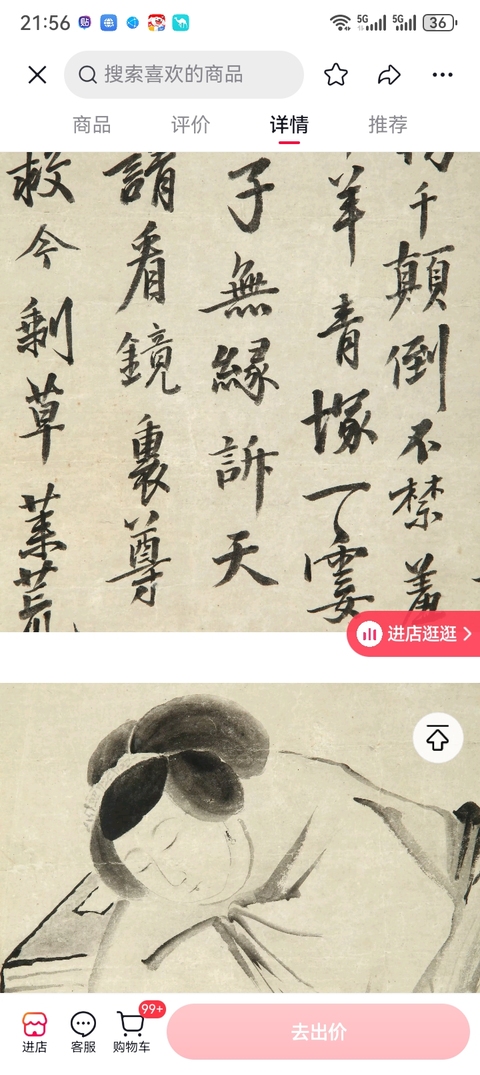 21:56
5G
5G
36
搜索喜欢的商品
商品
评价
详情
推荐
千顛倒不禁羞
羊青塚一霎
子無緣訴天
請看鏡裏尊
救今剩草萊荒
进店逛逛
进店
客服
购物车
99+
去出价